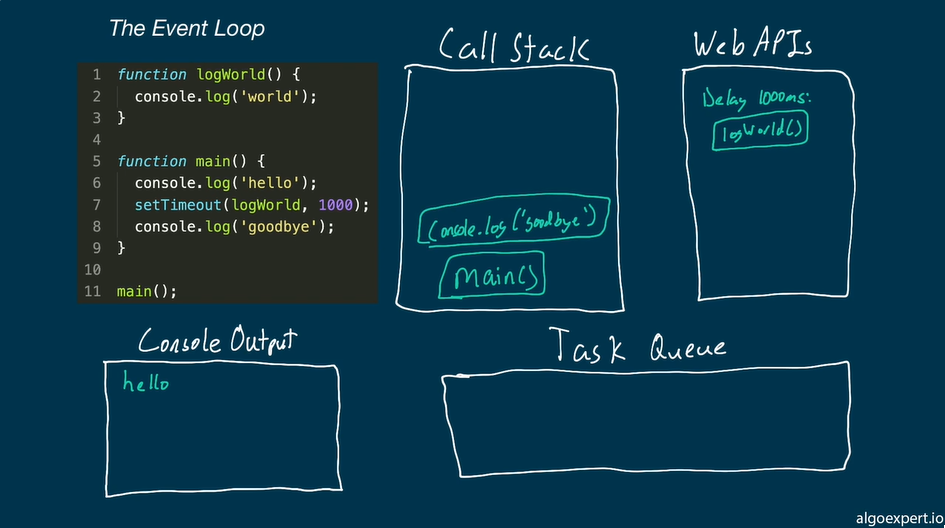 The Event Loop
1 function logWorld() {
2 console.log('world');
3 }
4
5 function main() {
6 console.log('hello');
7 setTimeout(logWorld, 1000);
8 console.log('goodbye');
9 }
10
11 main();
Call Stack
console.log('goodbye')
main()
Web APIs
Delay 1000ms:
logWorld()
Console Output
hello
Task Queue
algoexpert.io